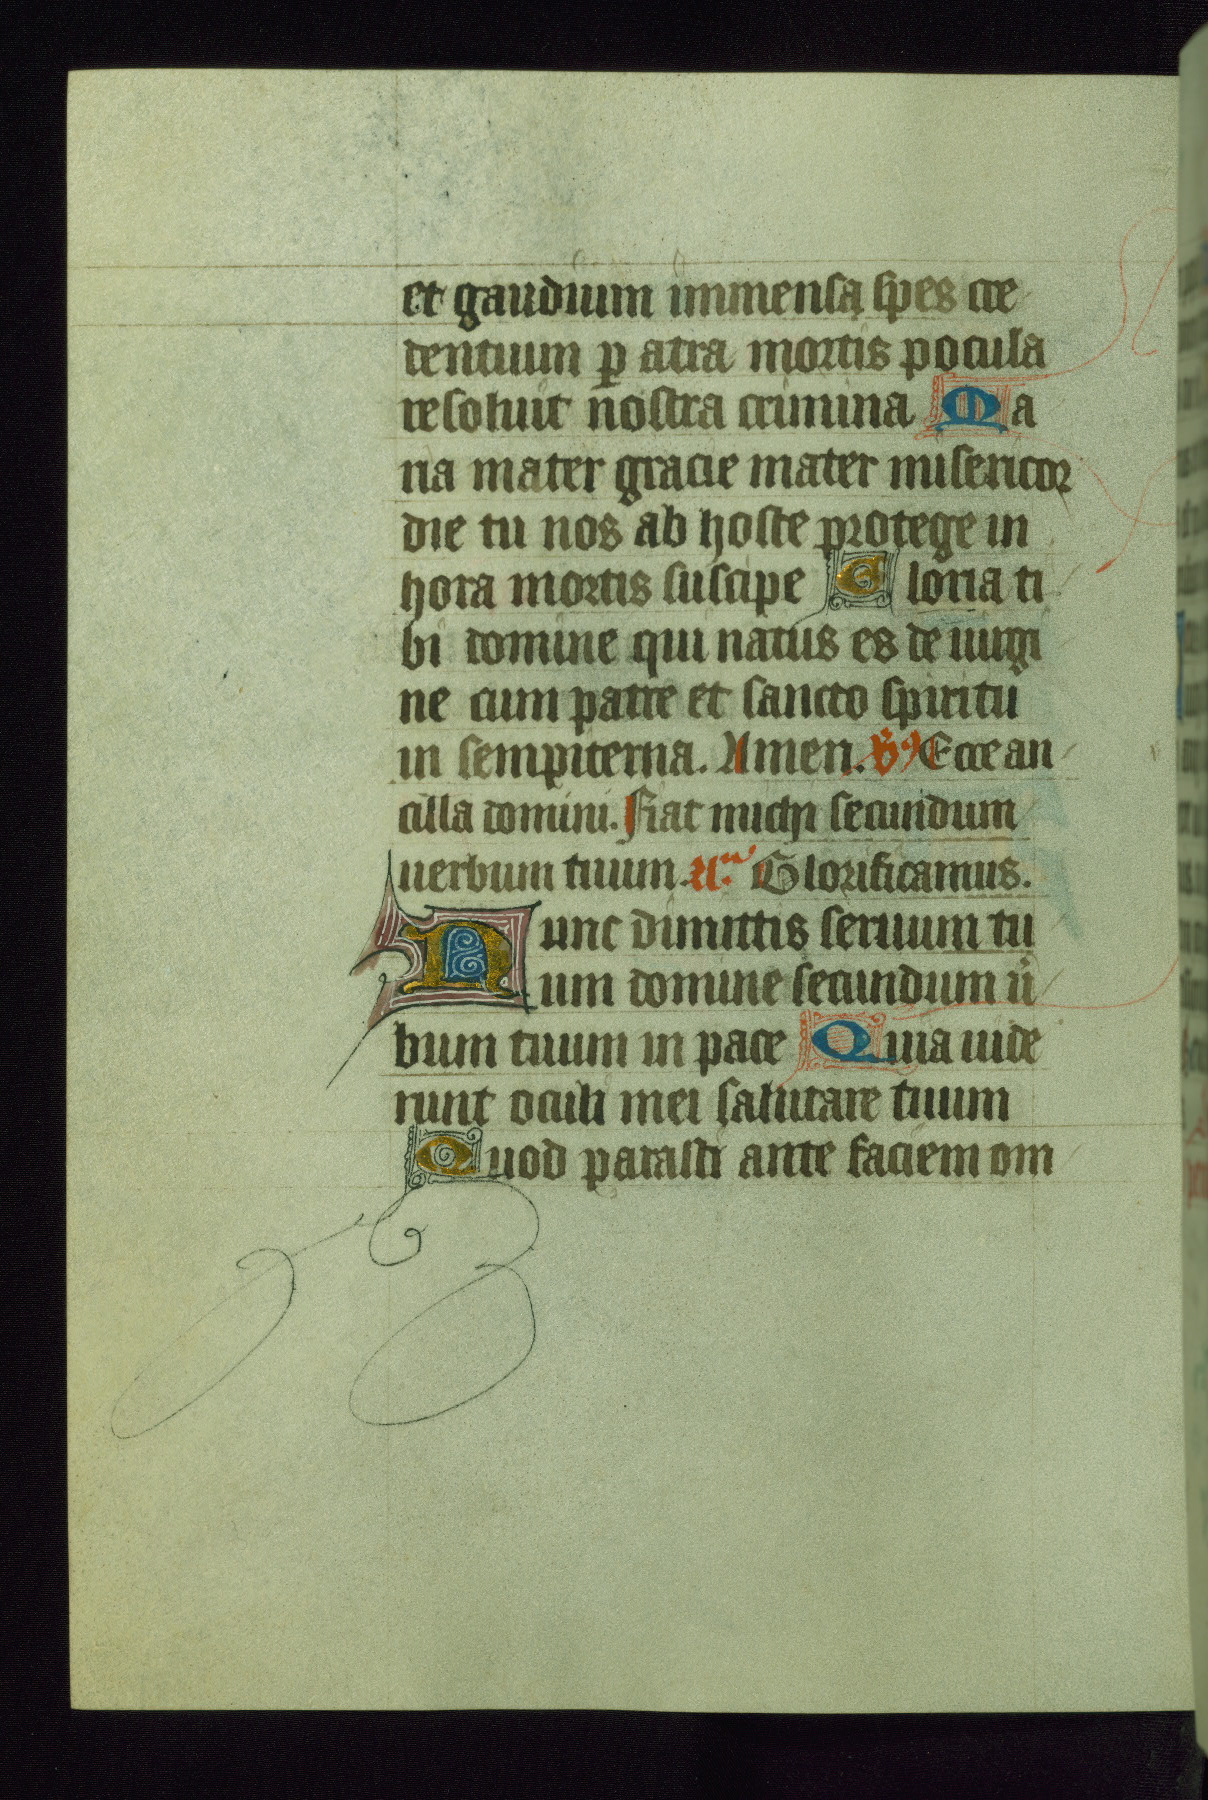 et gaudium immensa spes cre
dentium p atra mortis pocula
resoluit nostra crimina Ma
ria mater gracie mater misericor
die tu nos ab hoste protege in
hora mortis suscipe Gloria ti
bi domine qui natus es de uirgi
ne cum patre et sancto spiritu
in sempiterna. Amen. Ecce an
cilla domini. Fiat michi secundum
uerbum tuum. an Glorificamus.
Nunc dimittis seruum tu
um domine secundum u
bum tuum in pace Quia uide
runt oculi mei salutare tuum
Quod parasti ante faciem om